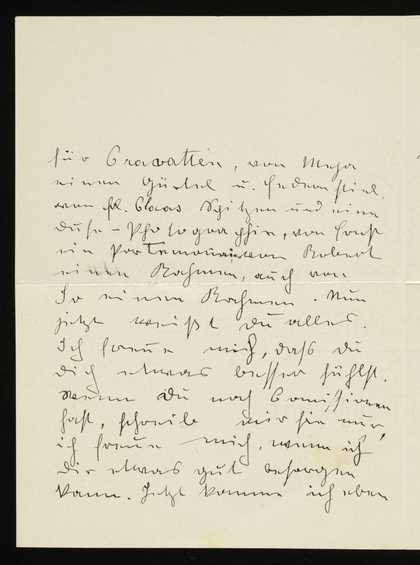 für Cravatten, von Mepa
einen Gürtel u. Federnstiel.
von Frl. Claas Spitzen und eine
Duse-Photographie, von Ernst
ein Portemonnaie von Robert
einen Rahmen, auch von
Jo einen Rahmen. Nun
jetzt weißt du alles.
Ich freue mich, daß du
dich etwas besser fühlst.
wenn du noch Comissionen
hast, schreib mir sie nur,
ich freue mich, wenn ich
dir etwas gut besorgen
kann. Jetzt komme ich eben